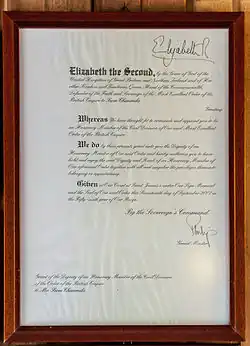 Elizabeth R
Elizabeth the Second, by the Grace of God of the
United Kingdom of Great Britain and Northern Ireland and of Her
other Realms and Territories Queen, Head of the Commonwealth,
Defender of the Faith and Sovereign of the Most Excellent Order of the
British Empire to
Greeting
Whereas We have thought fit to nominate and appoint you to be
an Honorary Member of the Civil Division of Our said Most Excellent
Order of the British Empire
We do by these presents grant unto you the Dignity of an
Honorary Member of Our said Order and hereby authorise you to have
hold and enjoy the said Dignity and Rank of an Honorary Member of
Our aforesaid Order together with all and singular the privileges thereunto
belonging or appertaining
Given at Our Court at Saint James's under Our Sign Manual
and the Seal of Our said Order this day of September 2007 in
the Fifty-sixth year of Our Reign
By the Sovereign's Command.
Grand Master
Grant of the Dignity of an Honorary Member of the Civil Division
of the Order of the British Empire
to Mr